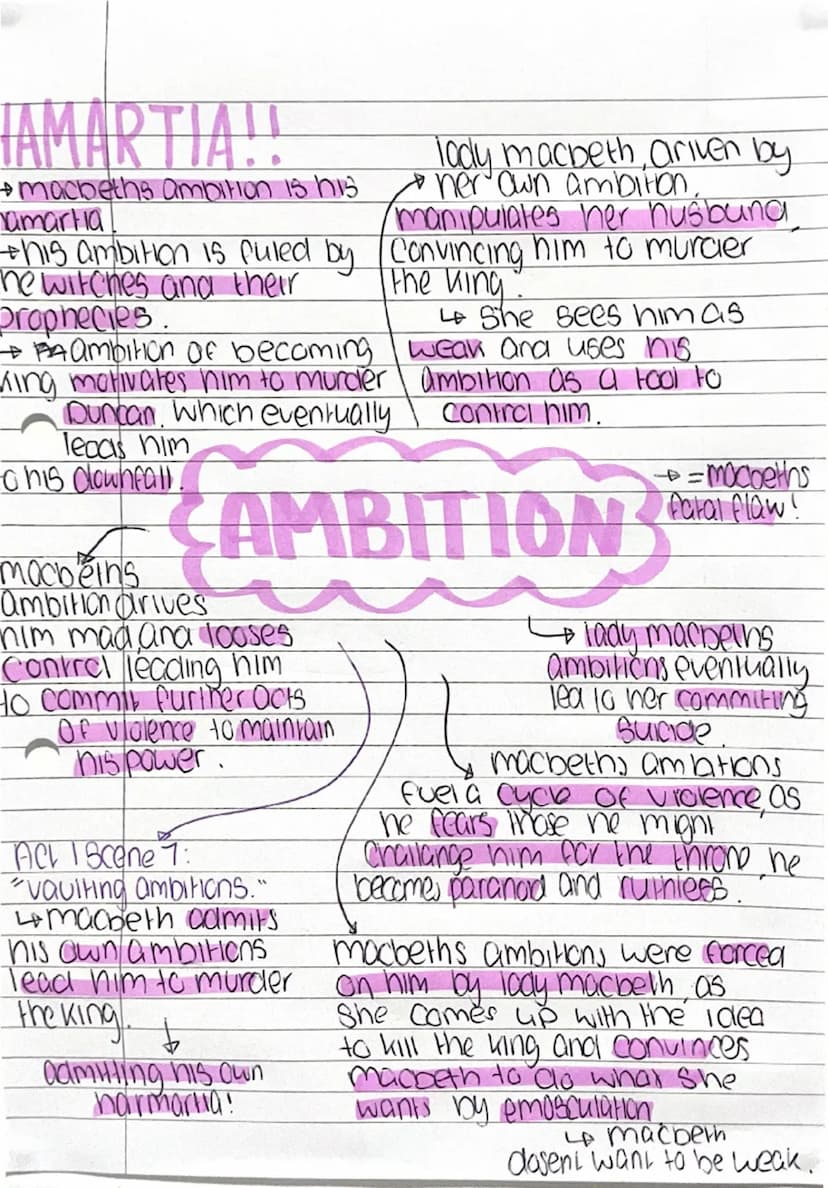 HAMARTIA!!
→ macbeths ambition is his
hamartia
→ his ambition is fuled by
the witches and their
prophecies.
→ Ambition of becoming
king motivates him to murder
Duncan. which eventually
leads him
to his downfall.
lady macbeth, driven by
her own ambition,
manipulates her husband,
convincing him to murder
the king.
↳ she sees him as
weak and uses his
ambition as a tool to
control him.
AMBITION
→ = macbeths
fatal flaw!
macbeths
ambition drives
him mad, and looses
control leading him
to commit further acts
of violence to maintain
his power.
↳ lady macbeths
ambitions eventually
lead to her commiting
suicide.
macbeths ambitions
fuel a cycle of violence, as
he fears those he might
challange him for the throne, he
becomes paranoid and ruthless.
Act 1 Scene 7:
"vaulting ambitions."
↳ macbeth admits
his own ambitions
lead him to murder
the king.
↓
admitting his own
harmartia!
macbeths ambitions were forced
on him by lady macbeth, as
she comes up with the idea
to kill the king and convinces
macbeth to do what she
wants by emasculation
↳ macbeth
dosent want to be weak.